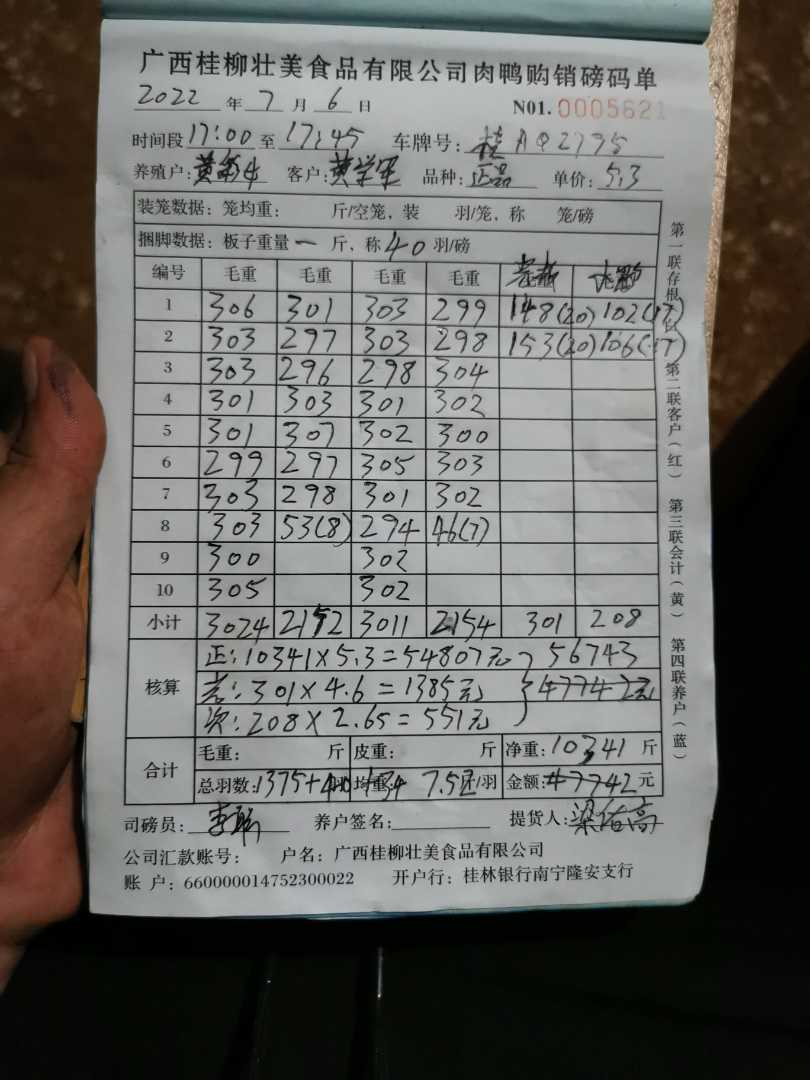 广西桂柳壮美食品有限公司肉鸭购销磅码单
2022 年 7 月 6 日 N01. 0005621
时间段 17:00 至 17:45 车牌号: 桂A
养殖户: 黄 客户: 黄学军 品种: 正品 单价: 5.3
装笼数据: 笼均重: 斤/空笼, 装 羽/笼, 称 笼/磅
捆脚数据: 板子重量 一 斤, 称 40 羽/磅
编号 毛重 毛重 毛重 毛重
1 306 301 303 299 148(20) 102(17)
2 303 297 303 298 153(20) 106(17)
3 303 296 298 304
4 301 303 301 302
5 301 307 302 300
6 299 297 305 303
7 303 298 301 302
8 303 53(8) 294 46(7)
9 300 302
10 305 302
小计 3024 2152 3011 2154 301 208
核算
正: 10341×5.3=54807元 56743
老: 301×4.6=1385元 47742元
次: 208×2.65=551元
合计
毛重: 斤 皮重: 斤 净重: 10341 斤
总羽数: 1375+ 羽 均重: 7.52 斤/羽 金额: 47742 元
司磅员: 李 养户签名: 提货人: 梁
公司汇款账号: 户名: 广西桂柳壮美食品有限公司
账 户: 660000014752300022 开户行: 桂林银行南宁隆安支行
第一联存根(白) 第二联客户(红) 第三联会计(黄) 第四联养户(蓝)